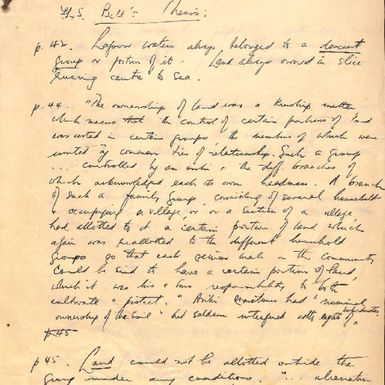 F.L.S. Bell's Thesis:
p. 42. Lagoon waters always belonged to a descent
group or portion of it. Land always owned in slice
running centre to sea.
p. 44. "The ownership of land was a kinship matter
which means that the control of certain portions of land
was vested in certain groups the members of which were
united by common ties of relationship. Such a group
... controlled by an and the diff. branches of
which acknowledged each its own headman. A branch
of such a family group, consisting of several households
& occupying a village, or or a section of a village,
had allotted to it a certain portion of land which
again was reallotted to the different household
groups so that each male in the community
could be said to have a certain portion of land,
which it was his responsibility to both
cultivate & protect." had "nominal
ownership of the soil" but seldom interfered with rights of subordinates
p 45
p 45. Land could not be allotted outside the
group under any conditions "... alienation